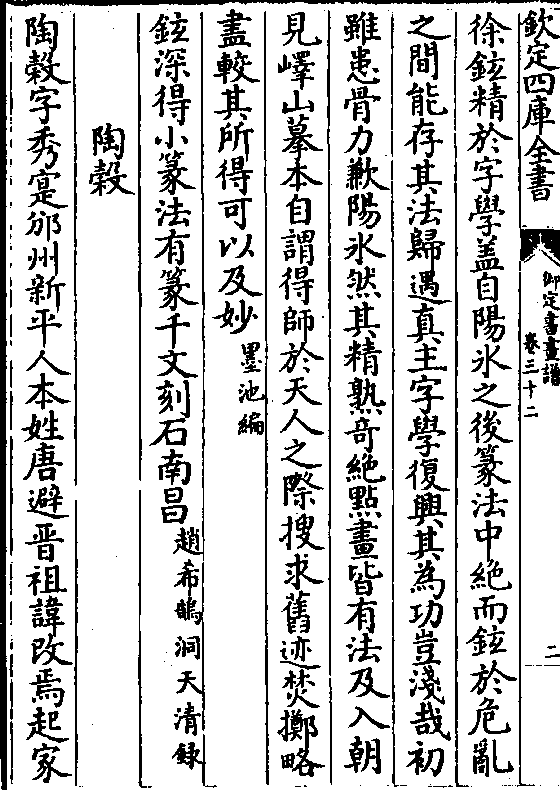 欽定四庫全書
御定書畫譜
卷三十二
二
徐鉉精於字學盖自陽氷之後篆法中絶而鉉於危亂
之間能存其法歸遇真主字學復興其為功豈淺哉初
雖患骨力歉陽氷然其精熟竒絶點畫皆有法及入朝
見嶧山摹本自謂得師於天人之際搜求舊迹焚擲略
盡較其所得可以及妙墨池編
鉉深得小篆法有篆千文刻石南昌趙希鵠洞天清録
陶穀
陶穀字秀寔邠州新平人本姓唐避晋祖諱改焉起家